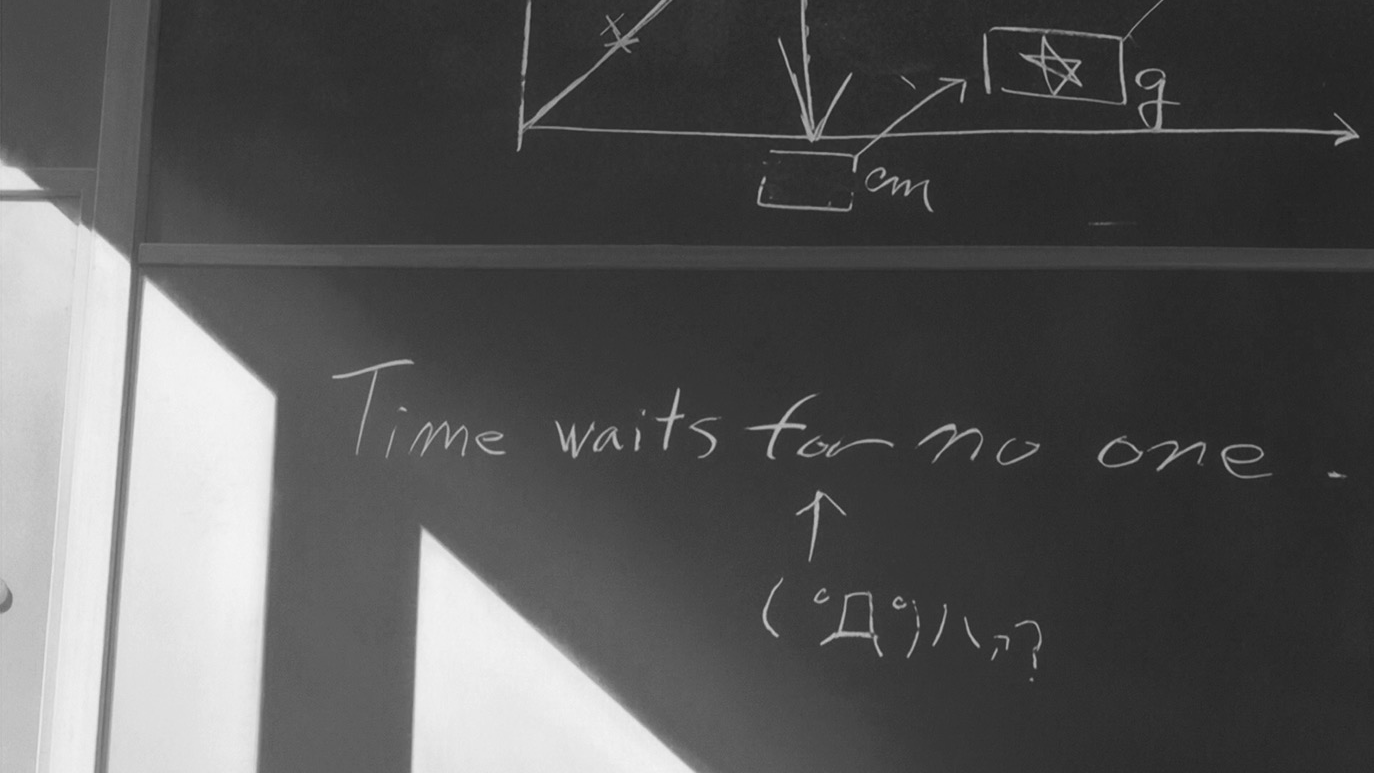 x
g
cm
Time waits for no one.
↑
(゚Д゚)ハァ?